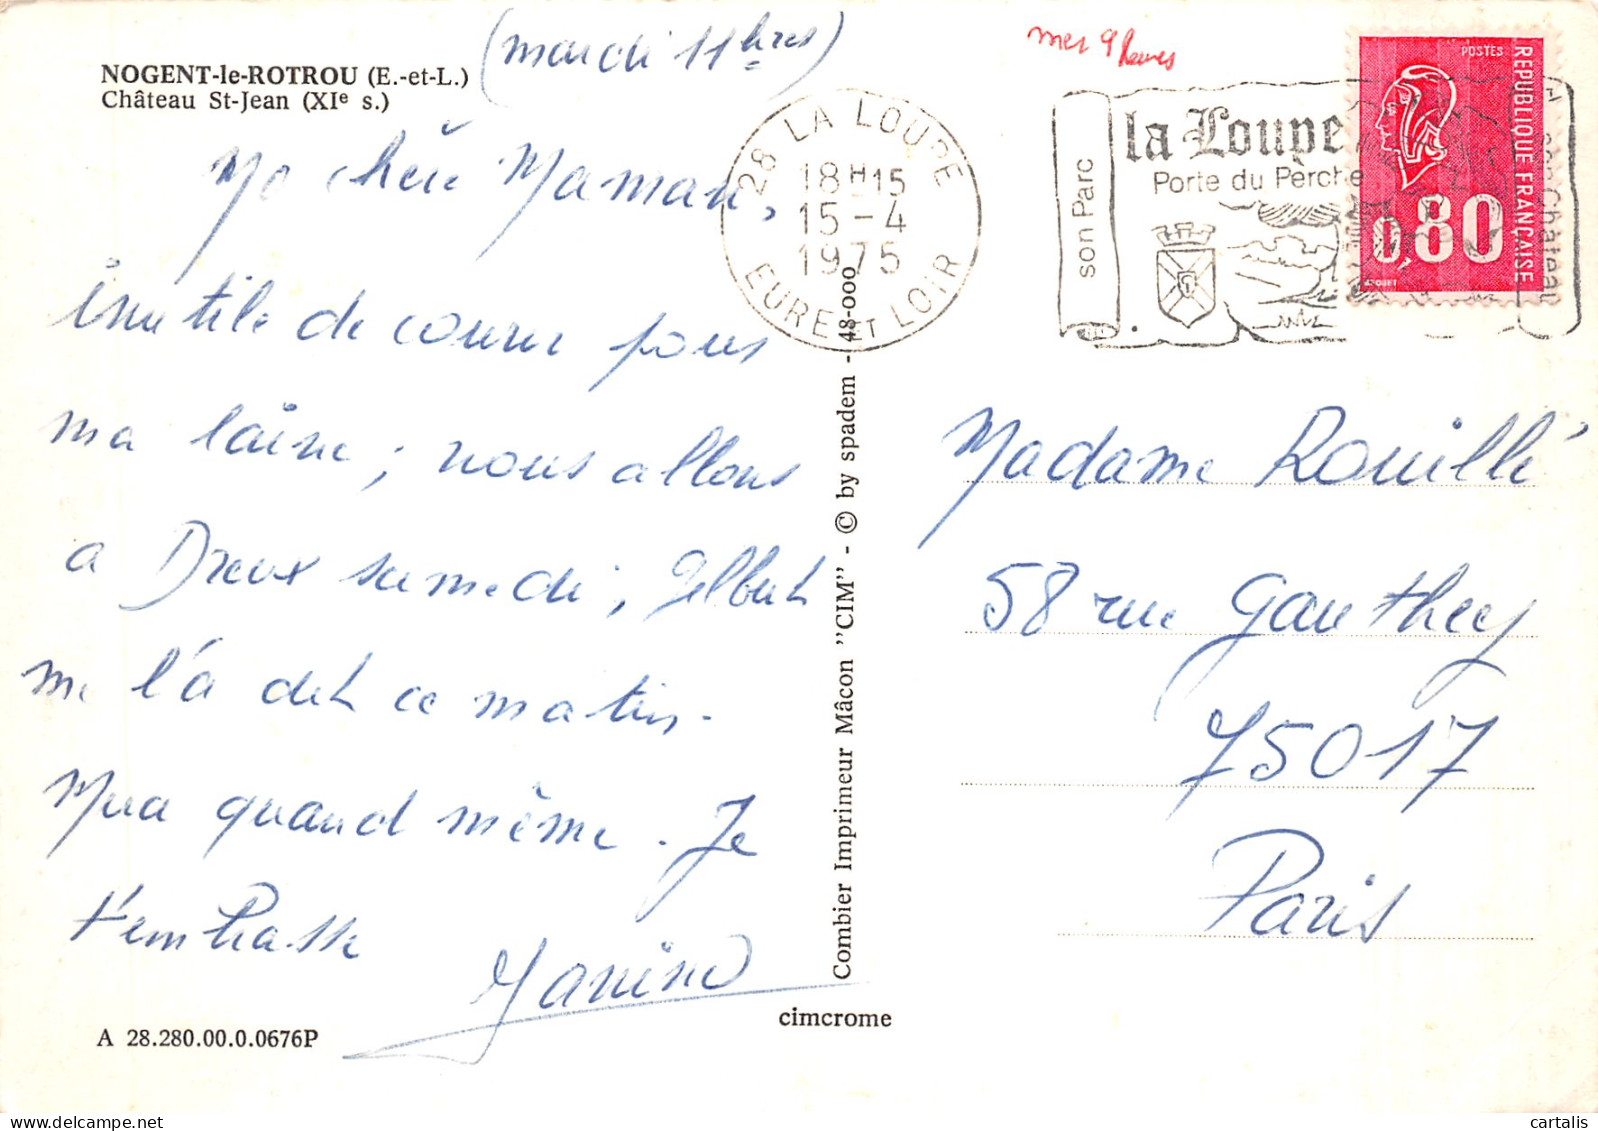 NOGENT-le-ROTROU (E.-et-L.)
Château St-Jean (XIe s.)
(mardi 11 hres)
Ma chère Maman,
inutile de courir pour
ma laine ; nous allons
a Dreux samedi,
me l'a dit ce matin.
quand même. Je
t'embrasse
Janine
A 28.280.00.0.0676P
cimcrome
Combier Imprimeur Mâcon "CIM" - © by spadem - 48-000
28 LA LOUPE
18H15
15-4
1975
EURE ET LOIR
mer 9 heures
son Parc
la Loupe
Porte du Perche
son Château
POSTES
REPUBLIQUE FRANCAISE
0,80
Madame Rouillé
58 rue Gauthey
75017
Paris
cartalis
www.delcampe.net